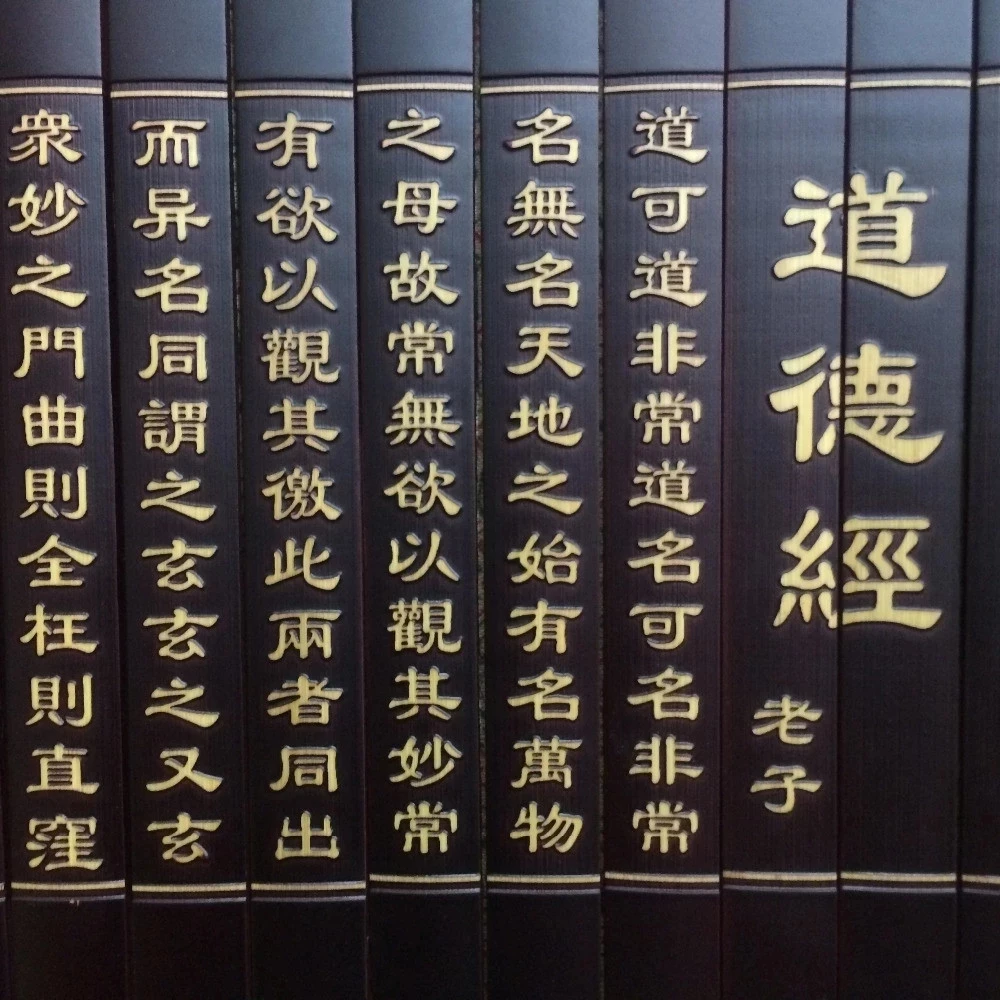 道德經
老子
道可道非常道名可名非常
名無名天地之始有名萬物
之母故常無欲以觀其妙常
有欲以觀其徼此兩者同出
而异名同謂之玄玄之又玄
衆妙之門曲則全枉則直窪